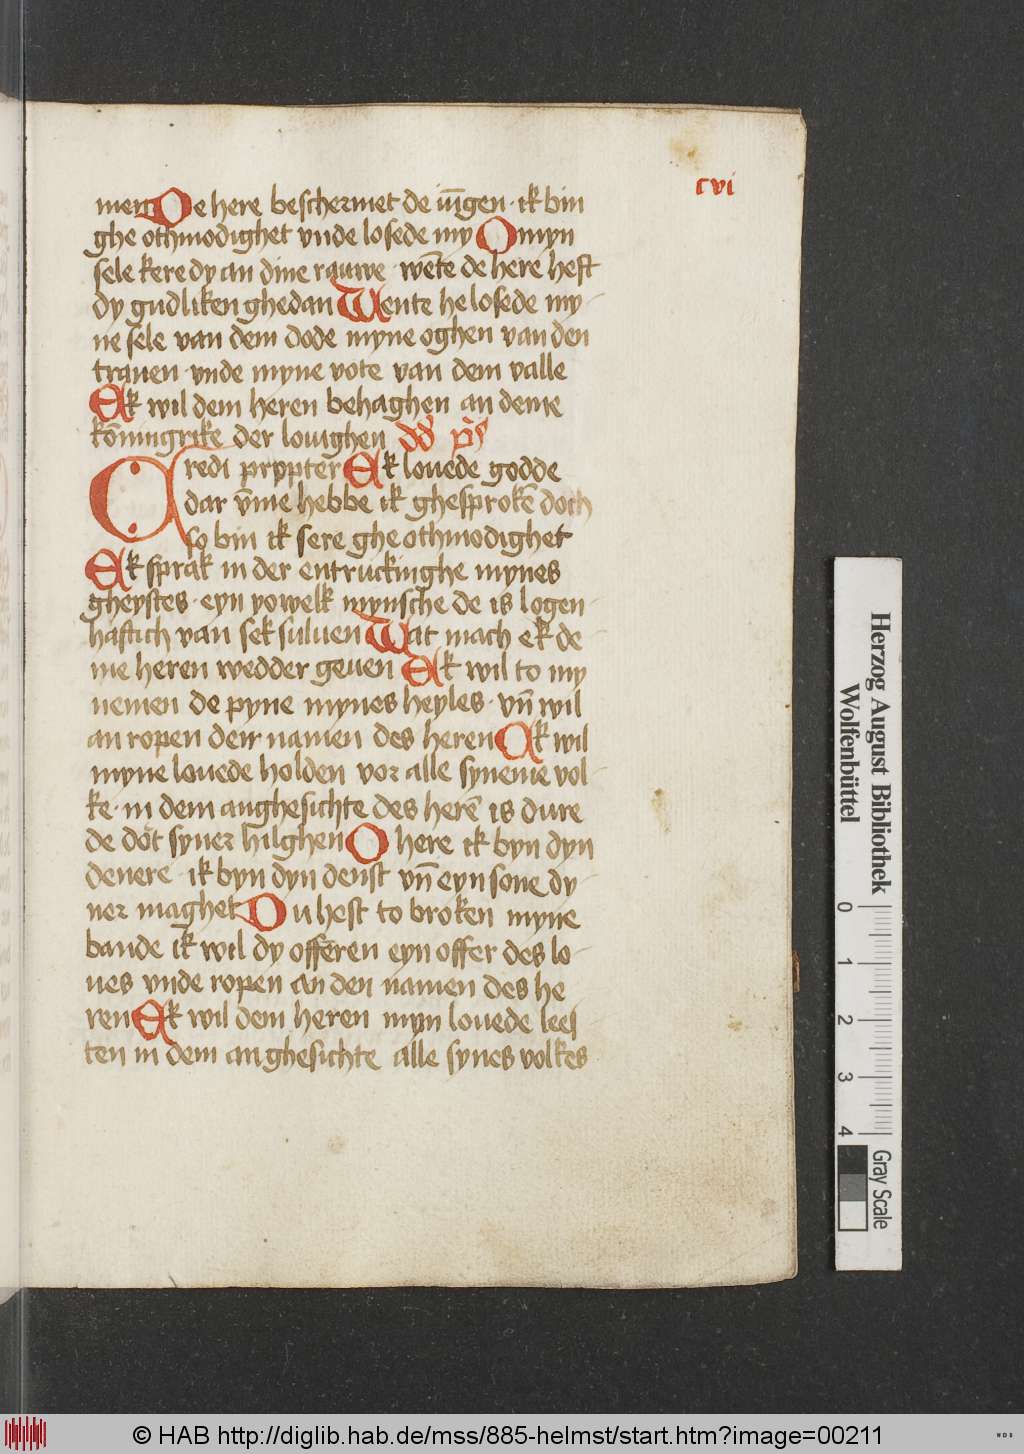 cvi
men De here beschermet de iu̅gen · ik bin
ghe othmodighet vnde losede my O myn
sele kere dy an dine rauwe · we̅te de here heft
dy gudliken ghedan Wente he losede my
ne sele van dem dode myne oghen van den
tranen · vnde myne vote van dem valle
Ek wil dem heren behaghen an deme
ko̅ningrike der louighen
Credi propter Ek louede godde
dar v̅me hebbe ik ghesproke̅ doch
so bin ik sere ghe othmodighet
Ek sprak in der entruckinghe mynes
gheystes · eyn yowelk mynsche de is logen
haftich van sek suluen Wat mach ek de
me heren wedder geuen Ek wil to my
nemen de pyne mynes heyles · vn̅ wil
an ropen den namen des heren Ek wil
myne louede holden vor alle syneme vol
ke · in dem anghesichte des here̅ is dure
de dot syner hilghen O here ik byn dyn
denere · ik byn dyn denst vn̅ eyn sone dy
ner maghet Du hest to broken myne
bande ik wil dy offeren eyn offer des lo
ues vnde ropen an den namen des he
ren Ek wil dem heren myn louede lees
ten in dem anghesichte alle synes volkes
Herzog August Bibliothek
Wolfenbüttel
0 1 2 3 4
Gray Scale
© HAB http://diglib.hab.de/mss/885-helmst/start.htm?image=00211
WDB